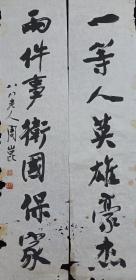 一等人英雄豪杰
两件事卫国保家
八八老人周昆